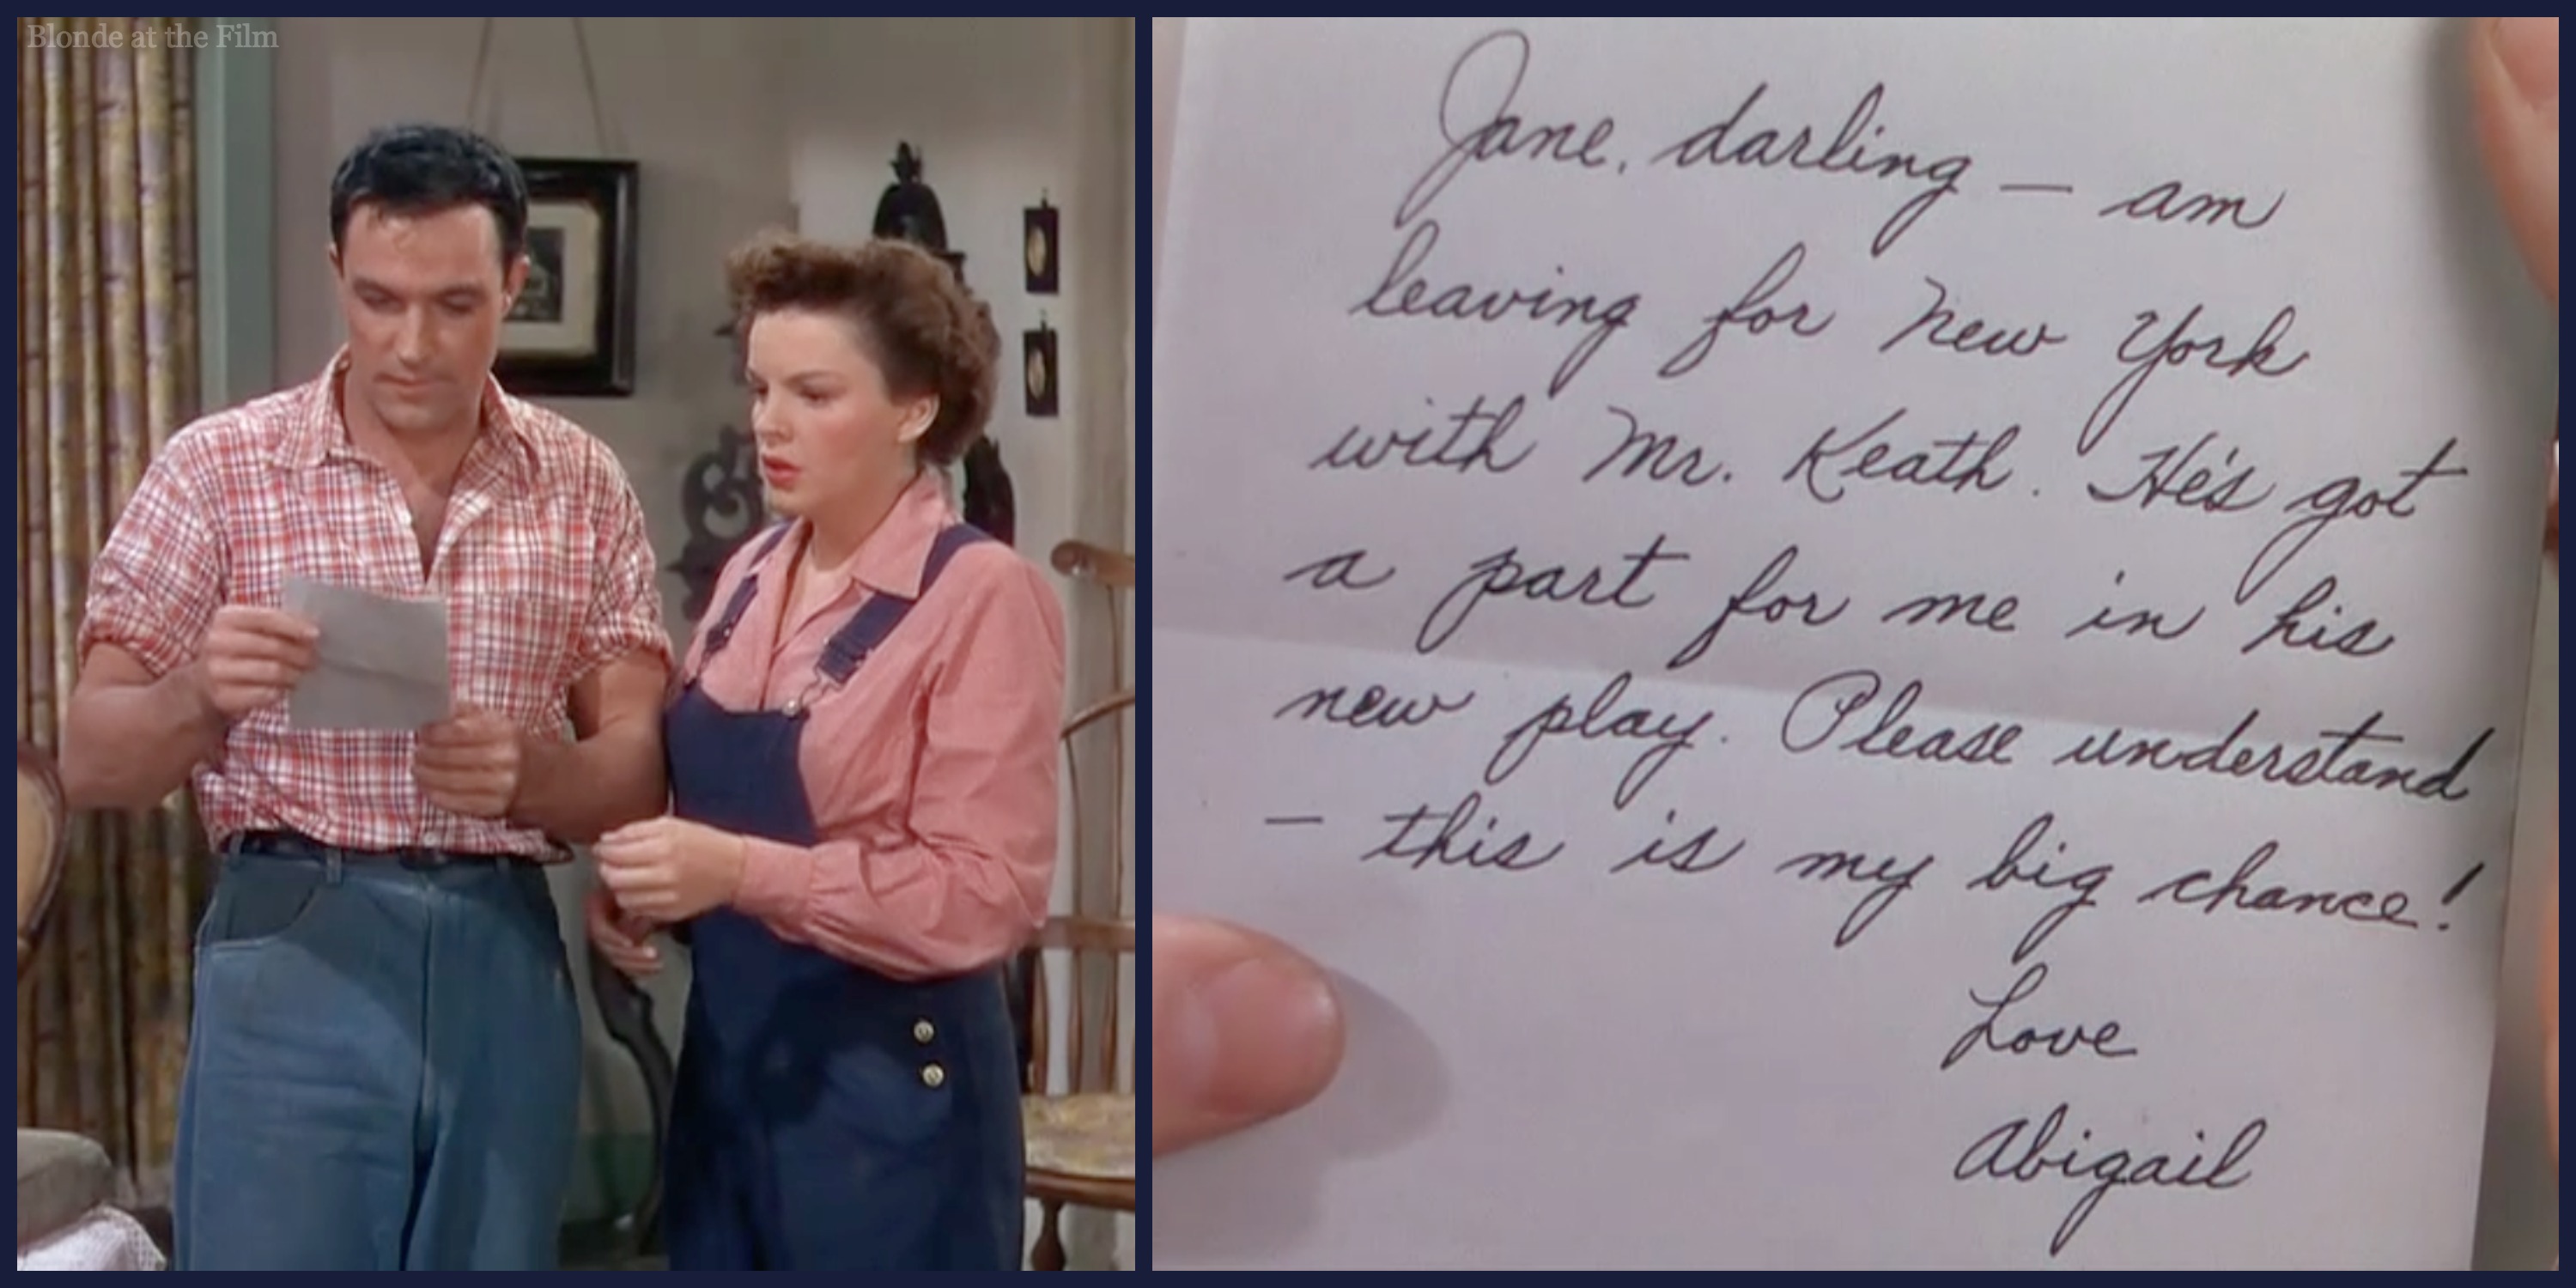 Blonde at the Film
Jane, darling — am
leaving for New York
with Mr. Keath. He's got
a part for me in his
new play. Please understand
— this is my big chance!
Love
Abigail